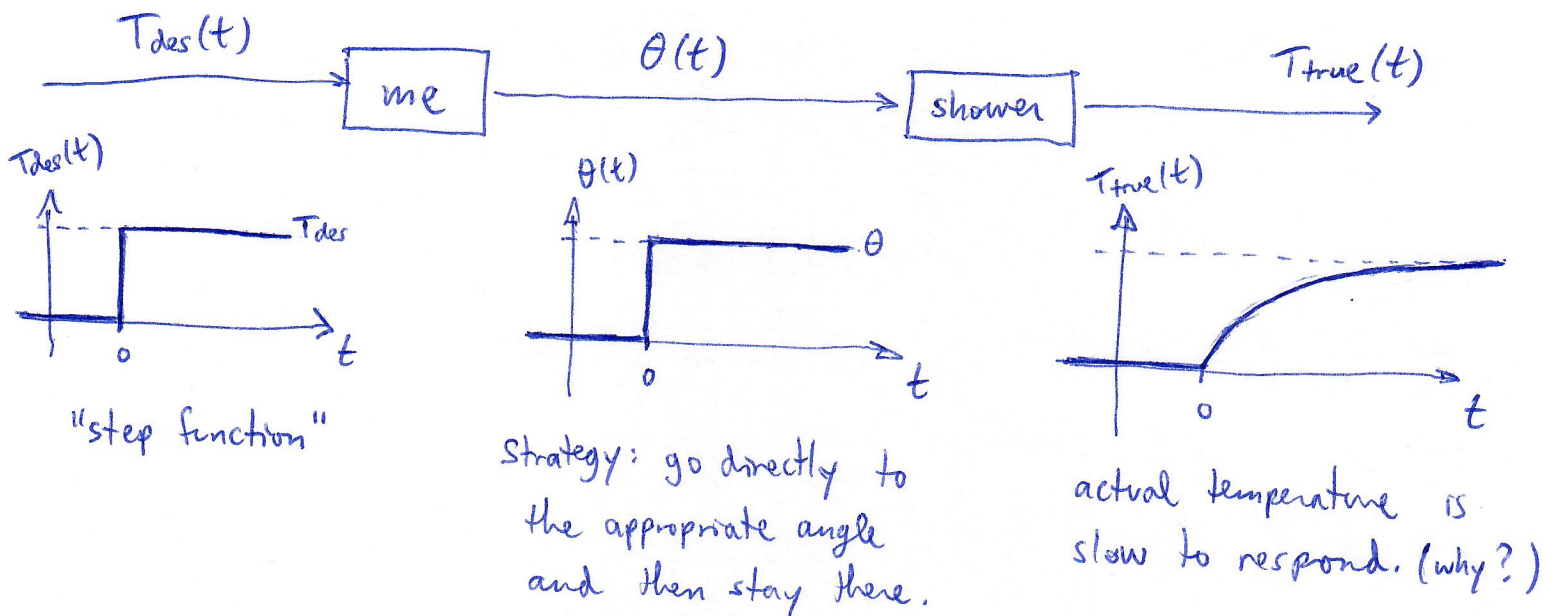 Tdes(t)
me
θ(t)
shower
Ttrue(t)
Tdes(t)
Tdes
0
t
"step function"
θ(t)
θ
0
t
Strategy: go directly to
the appropriate angle
and then stay there.
Ttrue(t)
0
t
actual temperature is
slow to respond. (why?)